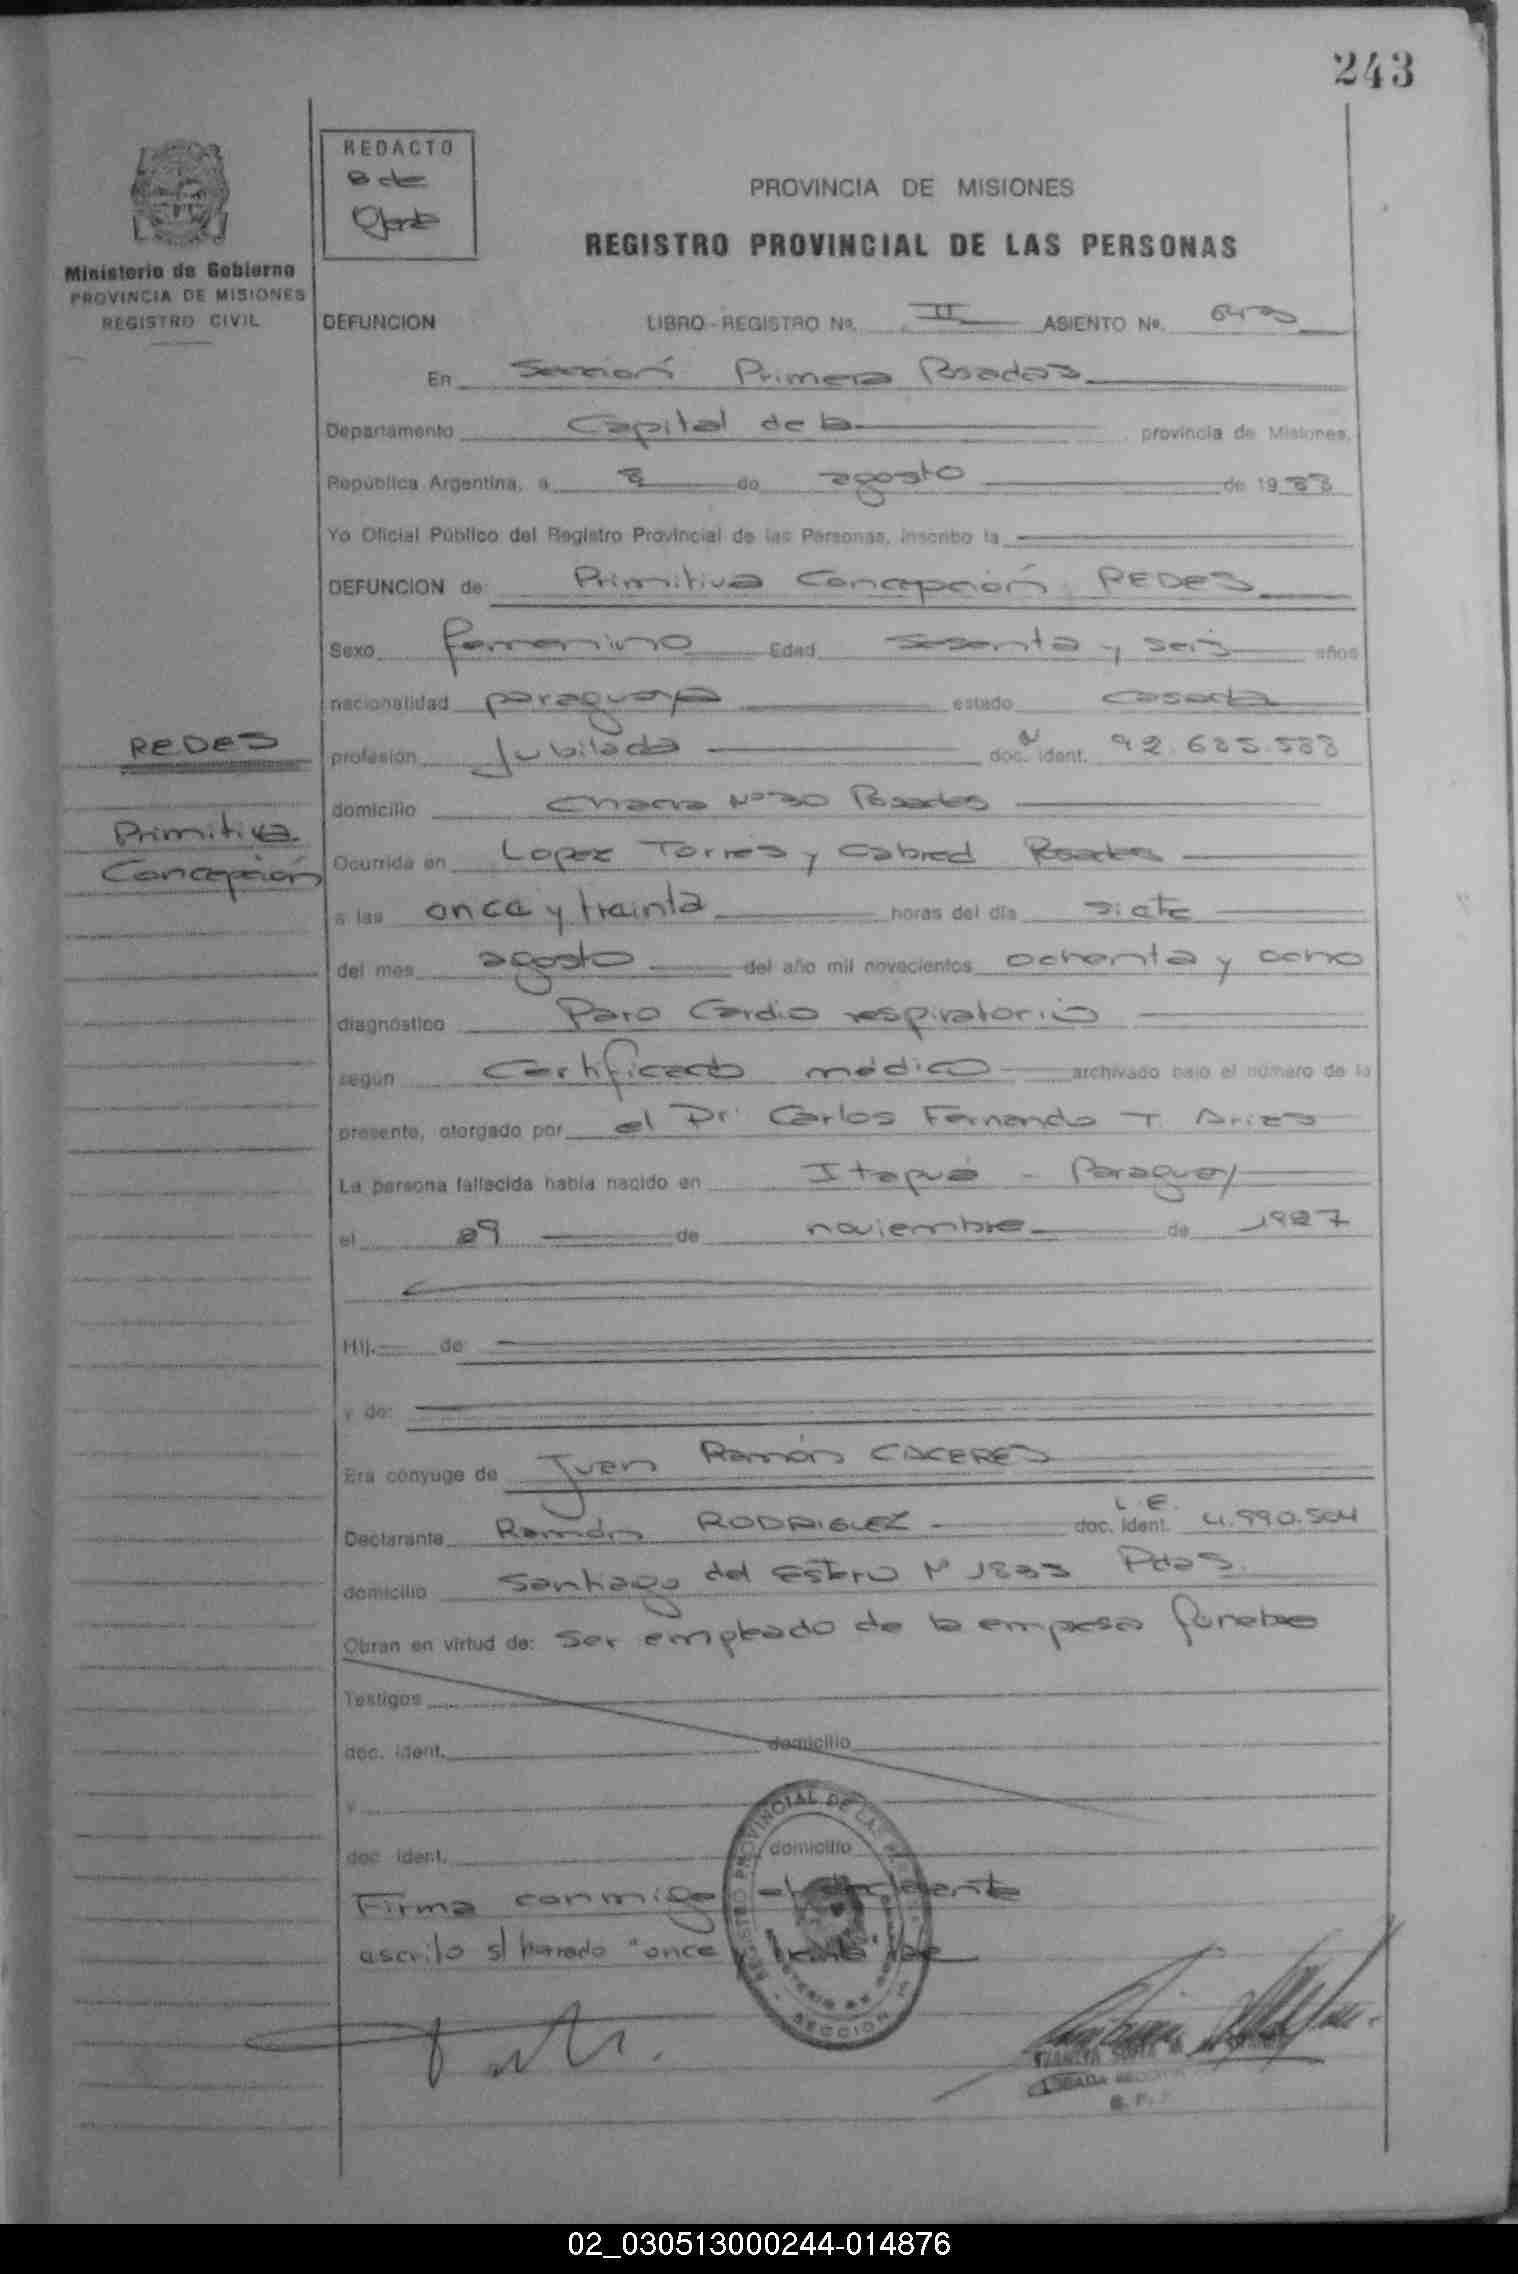 243
REDACTO
B de
Ministerio de Gobierno
PROVINCIA DE MISIONES
REGISTRO CIVIL
PROVINCIA DE MISIONES
REGISTRO PROVINCIAL DE LAS PERSONAS
DEFUNCION LIBRO - REGISTRO No. II ASIENTO No.
En Sección Primera Posadas
Departamento Capital de la provincia de Misiones,
República Argentina, a 8 de agosto de 1988
Yo Oficial Público del Registro Provincial de las Personas, inscribo la
DEFUNCION de: Primitiva Concepción REDES
Sexo femenino Edad sesenta y seis años
nacionalidad paraguaya estado casada
REDES
profesión Jubilada doc. ident. 92.685.588
domicilio Chacra Nº 30 Posadas
Primitiva
Concepción
Ocurrida en Lopez Torres y Cabred Posadas
a las once y treinta horas del día siete
del mes agosto del año mil novecientos ochenta y ocho
diagnóstico Paro Cardio respiratorio
según Certificado médico archivado bajo el número de la
presente, otorgado por el Dr. Carlos Fernando T. Aries
La persona fallecida había nacido en Itapuá - Paraguay
el 29 de noviembre de 1927
Hij. de:
y de:
Era cónyuge de Juan Ramón CACERES
Declarante Ramón RODRIGUEZ L.E. doc. ident. 4.990.504
domicilio Santiago del Estero Nº 1833 Pdas.
Obran en virtud de: ser empleado de la empresa funebre
Testigos
doc. ident. domicilio
y
doc. ident. domicilio
Firma conmigo el declarante
escrito s/ borrado "once y treinta" vale
REGISTRO PROVINCIAL DE LAS PERSONAS
SECCION 1
02_030513000244-014876